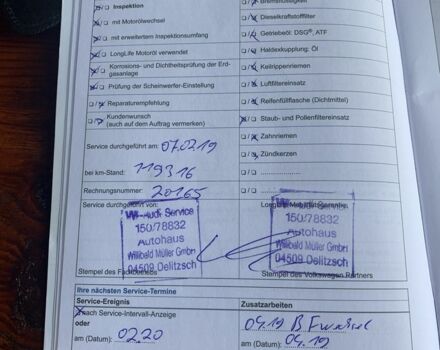 Inspektion
mit Motorölwechsel
mit erweitertem Inspektionsumfang
LongLife Motoröl verwendet
Korrosions- und Dichtheitsprüfung der Erd-
gasanlage
Prüfung der Scheinwerfer-Einstellung
Reparaturempfehlung
Kundenwunsch
(auch auf dem Auftrag vermerken)
Bremsflüssigkeit
Dieselkraftstofffilter
Getriebeöl: DSG®, ATF
Haldexkupplung: Öl
Keilrippenriemen
Luftfiltereinsatz
Reifenfüllflasche (Dichtmittel)
Staub- und Pollenfiltereinsatz
Zahnriemen
Zündkerzen
Service durchgeführt am: 07.02.19
bei km-Stand: 119316
Rechnungsnummer: 20165
Service durchgeführt von:
Audi Service
150/78832
Autohaus
Willibald Müller GmbH
04509 Delitzsch
Stempel des Fachbetriebs
150/78832
Autohaus
Willibald Müller GmbH
04509 Delitzsch
Stempel des Volkswagen Partners
Ihre nächsten Service-Termine
Service-Ereignis
nach Service-Intervall-Anzeige
oder
am (Datum): 02.20
Zusatzarbeiten
04.19
am (Datum): 04.19